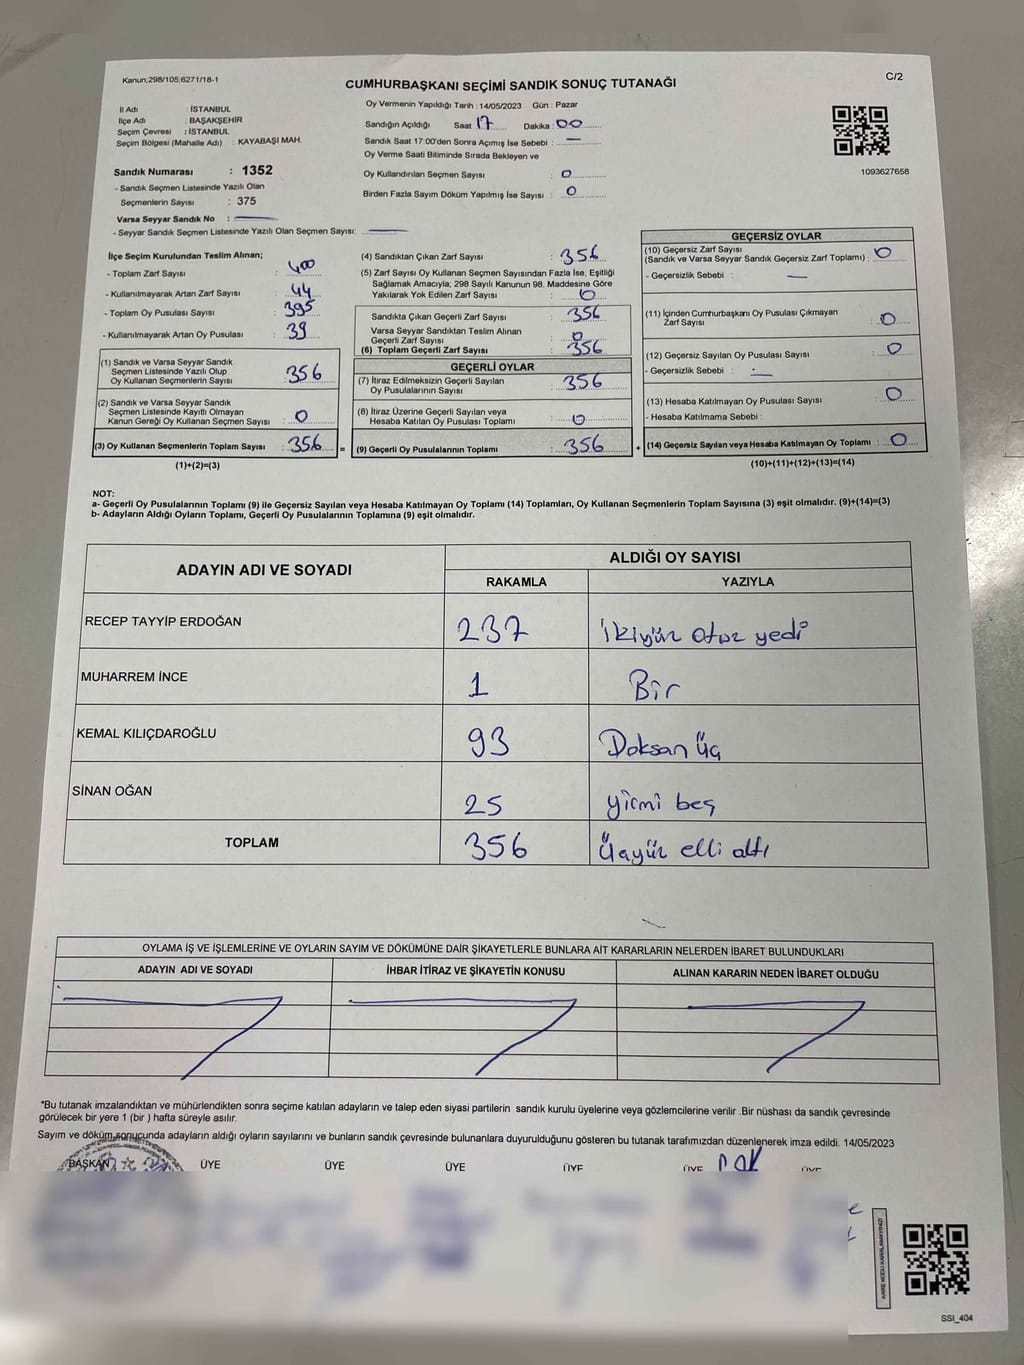 Kanun,298/105;6271/18-1
C/2
CUMHURBAŞKANI SEÇİMİ SANDIK SONUÇ TUTANAĞI
İl Adı : İSTANBUL
İlçe Adı : BAŞAKŞEHİR
Seçim Çevresi : İSTANBUL
Seçim Bölgesi (Mahalle Adı) : KAYABAŞI MAH.
Sandık Numarası : 1352
- Sandık Seçmen Listesinde Yazılı Olan
Seçmenlerin Sayısı : 375
Varsa Seyyar Sandık No :
- Seyyar Sandık Seçmen Listesinde Yazılı Olan Seçmen Sayısı:
Oy Vermenin Yapıldığı Tarih : 14/05/2023 Gün : Pazar
Sandığın Açıldığı Saat 17 Dakika : 00
Sandık Saat 17:00'den Sonra Açımış İse Sebebi : —
Oy Verme Saati Bitiminde Sırada Bekleyen ve
Oy Kullandırılan Seçmen Sayısı : 0
Birden Fazla Sayım Döküm Yapılmış İse Sayısı : 0
1093627658
İlçe Seçim Kurulundan Teslim Alınan;
- Toplam Zarf Sayısı : 400
- Kullanılmayarak Artan Zarf Sayısı : 44
- Toplam Oy Pusulası Sayısı : 395
- Kullanılmayarak Artan Oy Pusulası : 39
(1) Sandık ve Varsa Seyyar Sandık
Seçmen Listesinde Yazılı Olup
Oy Kullanan Seçmenlerin Sayısı : 356
(2) Sandık ve Varsa Seyyar Sandık
Seçmen Listesinde Kayıtlı Olmayan
Kanun Gereği Oy Kullanan Seçmen Sayısı : 0
(3) Oy Kullanan Seçmenlerin Toplam Sayısı : 356 =
(1)+(2)=(3)
(4) Sandıktan Çıkan Zarf Sayısı : 356
(5) Zarf Sayısı Oy Kullanan Seçmen Sayısından Fazla İse, Eşitliği
Sağlamak Amacıyla; 298 Sayılı Kanunun 98. Maddesine Göre
Yakılarak Yok Edilen Zarf Sayısı : 0
Sandıkta Çıkan Geçerli Zarf Sayısı : 356
Varsa Seyyar Sandıktan Teslim Alınan
Geçerli Zarf Sayısı : 0
(6) Toplam Geçerli Zarf Sayısı : 356
GEÇERLİ OYLAR
(7) İtiraz Edilmeksizin Geçerli Sayılan
Oy Pusulalarının Sayısı : 356
(8) İtiraz Üzerine Geçerli Sayılan veya
Hesaba Katılan Oy Pusulası Toplamı : 0
(9) Geçerli Oy Pusulalarının Toplamı : 356 +
GEÇERSİZ OYLAR
(10) Geçersiz Zarf Sayısı
(Sandık ve Varsa Seyyar Sandık Geçersiz Zarf Toplamı) : 0
- Geçersizlik Sebebi : —
(11) İçinden Cumhurbaşkanı Oy Pusulası Çıkmayan
Zarf Sayısı : 0
(12) Geçersiz Sayılan Oy Pusulası Sayısı : 0
- Geçersizlik Sebebi : —
(13) Hesaba Katılmayan Oy Pusulası Sayısı : 0
- Hesaba Katılmama Sebebi :
(14) Geçersiz Sayılan veya Hesaba Katılmayan Oy Toplamı : 0
(10)+(11)+(12)+(13)=(14)
NOT:
a- Geçerli Oy Pusulalarının Toplamı (9) ile Geçersiz Sayılan veya Hesaba Katılmayan Oy Toplamı (14) Toplamları, Oy Kullanan Seçmenlerin Toplam Sayısına (3) eşit olmalıdır. (9)+(14)=(3)
b- Adayların Aldığı Oyların Toplamı, Geçerli Oy Pusulalarının Toplamına (9) eşit olmalıdır.
ADAYIN ADI VE SOYADI
ALDIĞI OY SAYISI
RAKAMLA YAZIYLA
RECEP TAYYİP ERDOĞAN 237 İkiyüz otuz yedi
MUHARREM İNCE 1 Bir
KEMAL KILIÇDAROĞLU 93 Doksan üç
SİNAN OĞAN 25 yirmi beş
TOPLAM 356 Üçyüz elli altı
OYLAMA İŞ VE İŞLEMLERİNE VE OYLARIN SAYIM VE DÖKÜMÜNE DAİR ŞİKAYETLERLE BUNLARA AİT KARARLARIN NELERDEN İBARET BULUNDUKLARI
ADAYIN ADI VE SOYADI İHBAR İTİRAZ VE ŞİKAYETİN KONUSU ALINAN KARARIN NEDEN İBARET OLDUĞU
*Bu tutanak imzalandıktan ve mühürlendikten sonra seçime katılan adayların ve talep eden siyasi partilerin sandık kurulu üyelerine veya gözlemcilerine verilir .Bir nüshası da sandık çevresinde
görülecek bir yere 1 (bir ) hafta süreyle asılır.
Sayım ve döküm sonucunda adayların aldığı oyların sayılarını ve bunların sandık çevresinde bulunanlara duyurulduğunu gösteren bu tutanak tarafımızdan düzenlenerek imza edildi. 14/05/2023
BAŞKAN ÜYE ÜYE ÜYE ÜYE ÜYE ÜYE
SSI_404